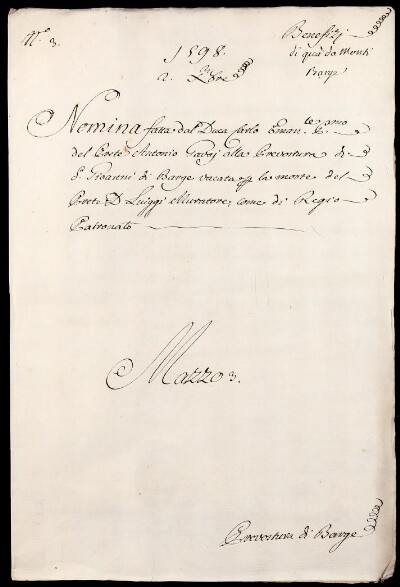 N.° 3.
Beneffizj
di quà da Monti
Barge
1598.
2. 9bre
Nomina fatta dal Duca Carlo Eman.le P.mo
del Prete Antonio Gavej alla Prevostura di
S. Gioanni di Barge vacata p la morte del
Prete D. Luiggi Muratore, come di Regio
Patronato
Mazzo 3.
Prevostura di Barge